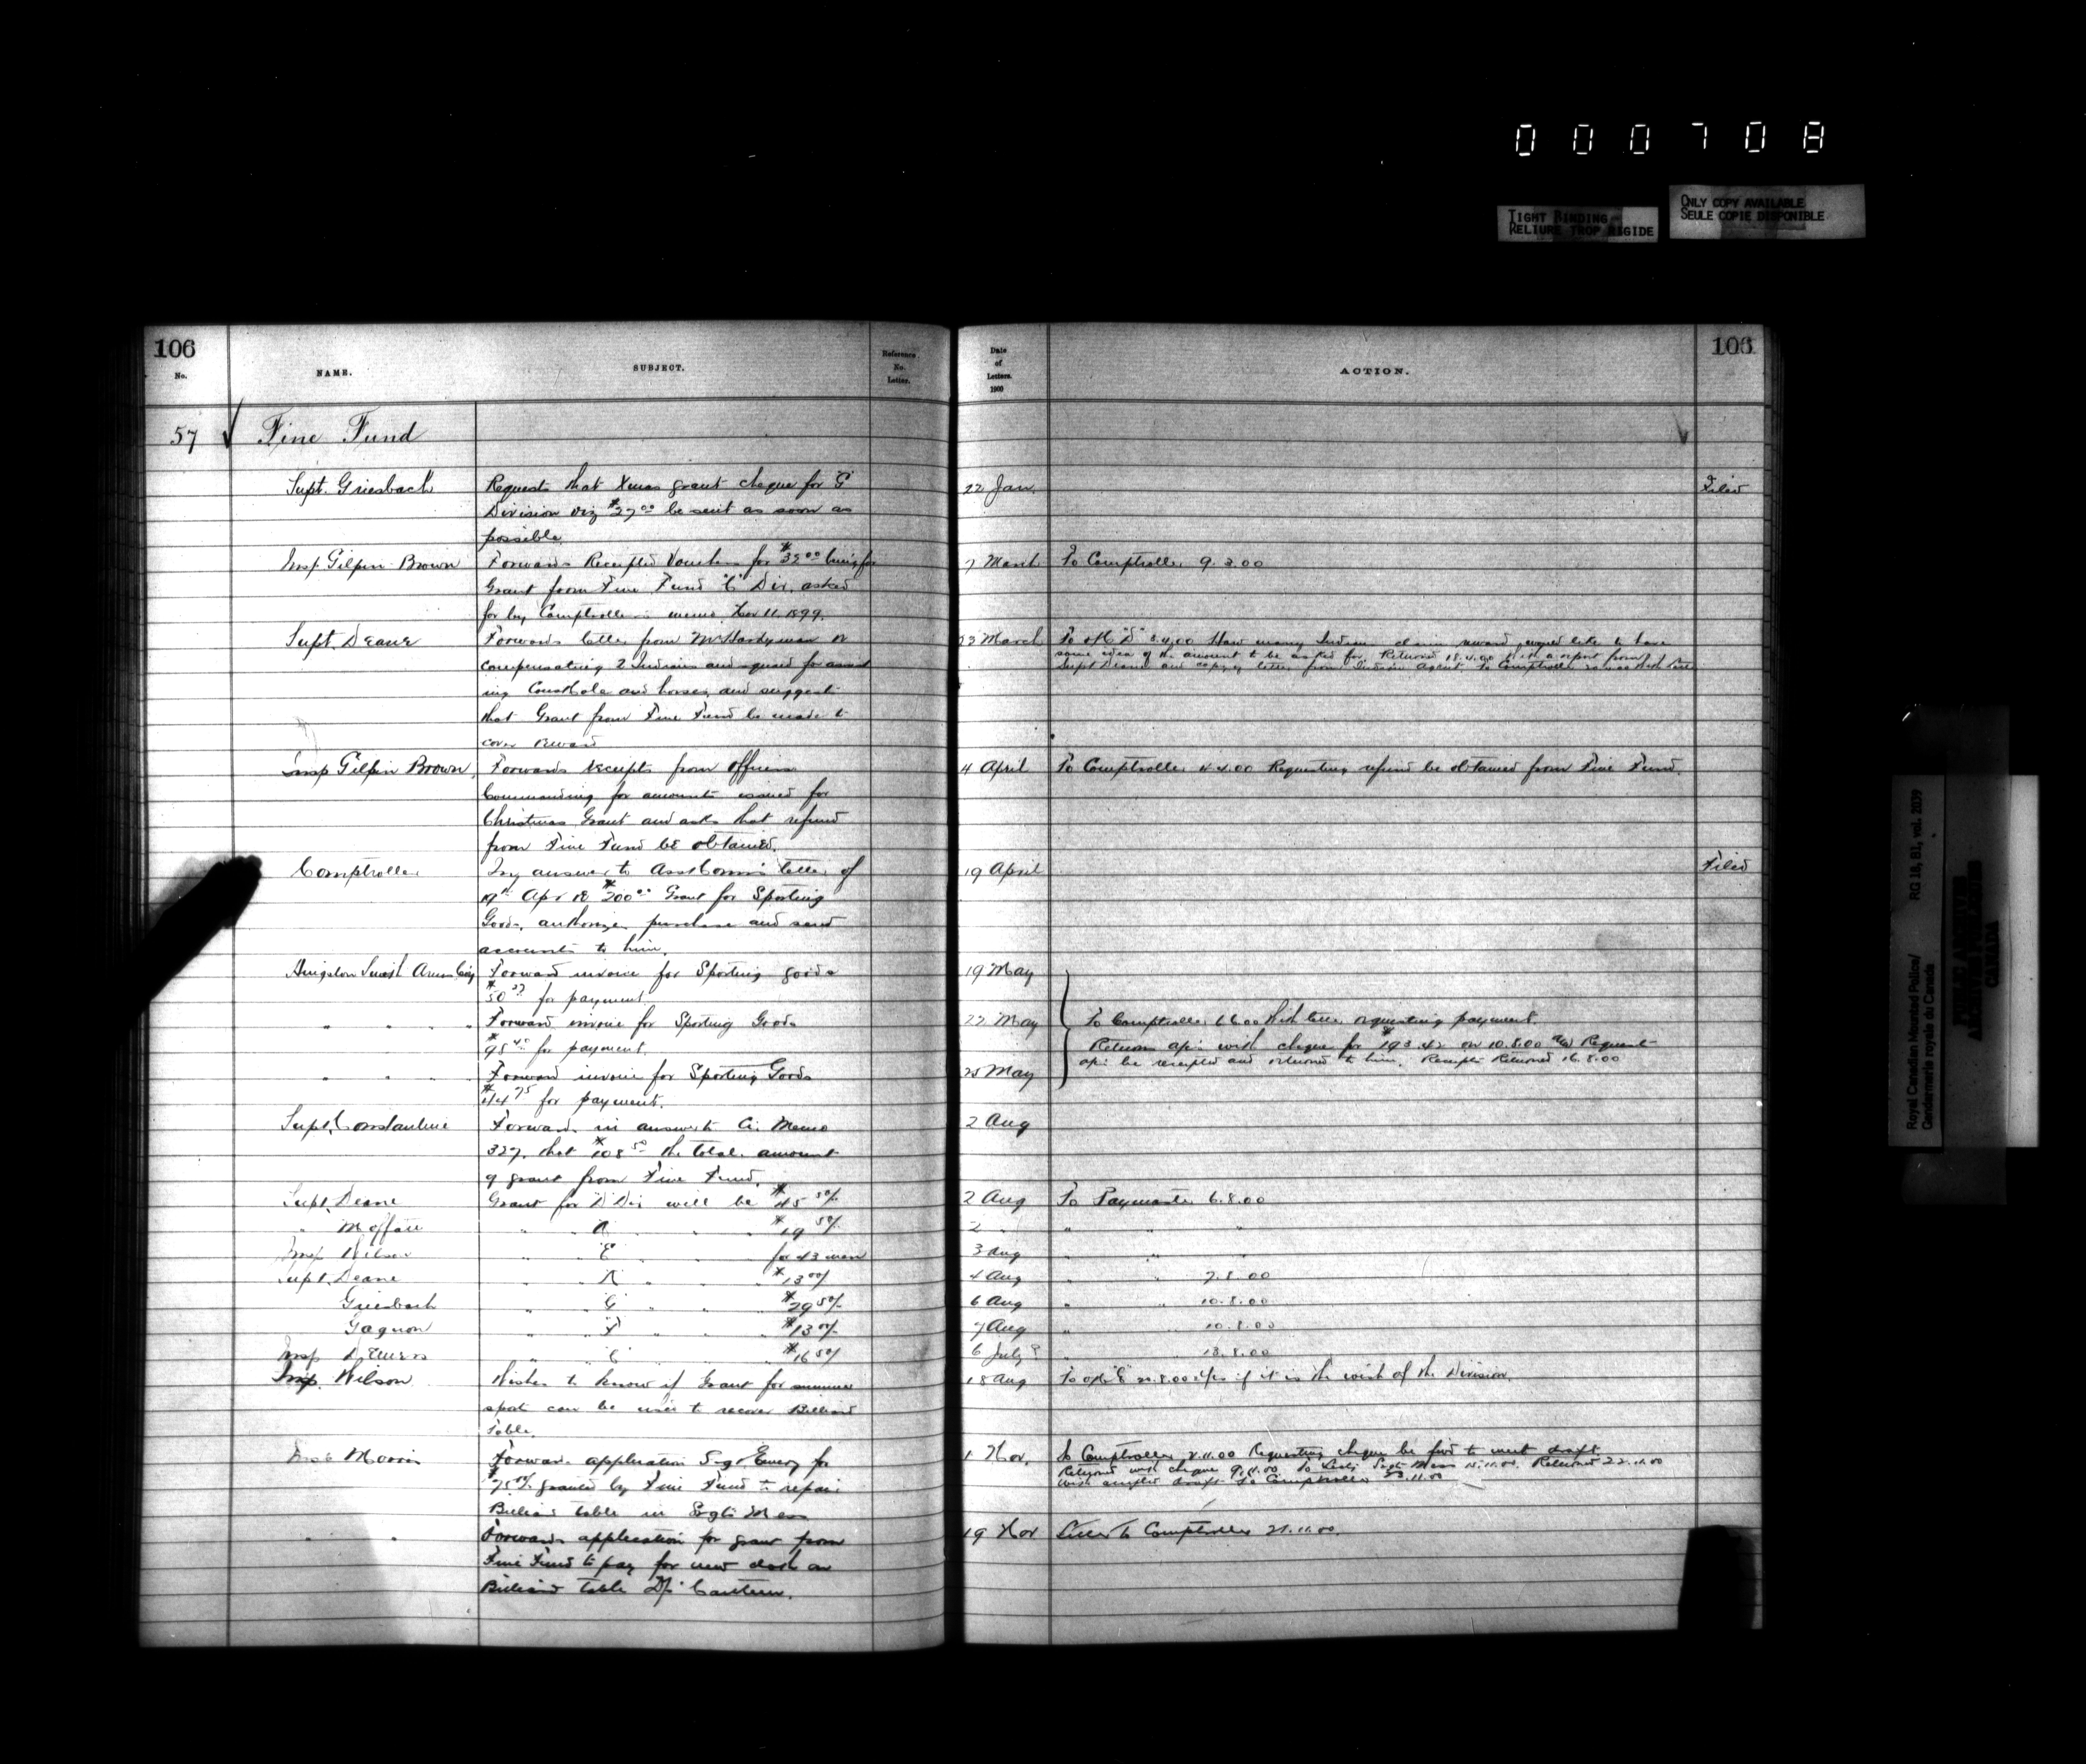 000708
TIGHT BINDING
RELIURE TROP RIGIDE
ONLY COPY AVAILABLE
SEULE COPIE DISPONIBLE
106
No.
NAME.
SUBJECT.
Reference
No.
Letter.
57 Fine Fund
Supt. Griesbach
Requests that Xmas grant cheque for "G"
Division viz $27.00 be sent as soon as
possible.
Insp Gilpin Brown
Forwards Receipted Vouchers for being for
Grant from Fine Fund Div. asked
for by Comptroller's memo. Nov 11. 1899.
Supt. Deane
Forwards letter from Mr Hardyman re
compensating 2 Indians and squad for assist
ing Constable and horses, and suggest
that Grant from Fine Fund be made to
cover reward
Insp Gilpin Brown,
Forwards receipts from Officers
Commanding for amounts issued for
Christmas Grant and asks that refund
from Fine Fund be obtained.
Comptroller
In answer to Asst Comm's letter of
19th Apr re $200.00 Grant for Sporting
Goods, authorizes purchase and send
accounts to him.
Hingston Smith Arms Coy
Forward invoice for Sporting goods
for payment.
" " " "
Forward invoice for Sporting Goods
for payment.
" " " "
Forward invoice for Sporting Goods
$44.75 for payment.
Supt. Constantine
Forwards in answer to Ci. Memo
327, that $108.50 the total amount
of grant from Fine Fund.
Supt. Deane
Grant for D Div will be $45.50/
" Moffatt
" " A " " " $19.50/
Insp Wilson
" " "E" " " for 43 men
Supt. Deane
" " K " " " $13.00/
Griesbach
" " "G" " " " $29.50/
Gagnon
" " "F" " " " $13.00/
Insp Demers
" " "C" " " " $16.50/
Insp. Wilson
Wishes to know if Grant for summer
sports can be used to recover Billiard
Table.
Insp Morris
Forwards application Sergt Emery for
$75.00/ granted by Fine Fund to repair
Billiard table in Sergts Mess
" "
Forwards application for grant from
Fine Fund to pay for new cloth on
Billiard table Dp. Canteen.
Date
of
Letters.
1900
ACTION.
106
22 Jan.
Filed
7 March To Comptroller 9.3.00
23 March To OC "D" 5.4.00 How many Indians claim reward, would like to have
some idea of the amount to be asked for. Returned 18.4.00 with a report from
Supt Deane and copy of letter from Indian Agent. To Comptroller
4 April To Comptroller 4.4.00 Requesting refund be obtained from Fine Fund.
19 April
Filed
19 May
22 May To Comptroller 1.6.00 with letter requesting payment.
Returns with cheque for 193.42 on 10.8.00 Request
be receipted and returned to him. Receipts Returned 16.8.00
25 May
2 Aug
2 Aug To Paymaster 6.8.00
2 " " " "
3 Aug " " "
4 Aug " " 7.8.00
6 Aug " " 10.8.00
7 Aug " " 10.8.00
6 July? " 13.8.00
18 Aug To if it is the wish of the Division.
1 Nov. To Comptroller 2.11.00 Requesting cheque be fwd to meet draft.
Returned with cheque 9.11.00. To Sergts Mess 15.11.00. Returned 22.11.00
with draft To Comptroller 23.11.00
19 Nov Letter to Comptroller 21.11.00.
Royal Canadian Mounted Police/
Gendarmerie royale du Canada
RG 18, B1, vol. 2039
PUBLIC ARCHIVES
ARCHIVES PUBLIQUES
CANADA